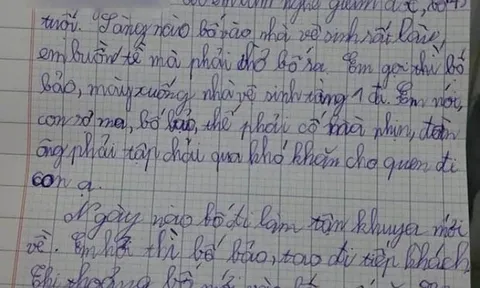 em làm nghề giám đốc, bố 47
tuổi. Sáng nào bố vào nhà vệ sinh rất lâu,
em buồn tè mà phải chờ bố ra. Em gọi thì bố
bảo, mày xuống nhà vệ sinh tầng 1 đi. Em nói,
con sợ ma, bố bảo, thế phải cố mà nhịn, đàn
ông phải tập chịu qua khó khăn cho quen đi
con ạ.
Ngày nào bố đi làm tận khuya mới
về. Em hỏi thì bố bảo, tao đi tiếp khách
thi thoảng bố mới